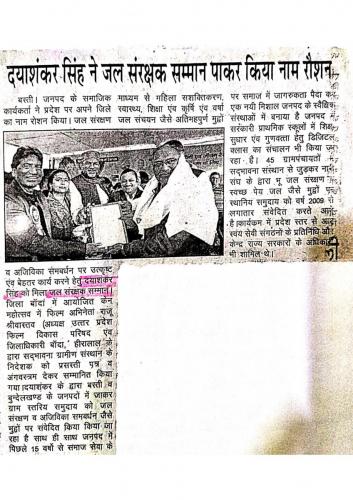 दयाशंकर सिंह ने जल संरक्षक सम्मान पाकर किया नाम रौशन
बस्ती। जनपद के समाजिक
कार्यकर्ता ने प्रदेश पर अपने जिले
का नाम रोशन किया। जल संरक्षण
माध्यम से महिला सशक्तिकरण,
स्वास्थ्य, शिक्षा एंव कृर्षि एंव वर्षा
जल संचयन जैसे अतिमहर्पण मुद्दों
व अजिविका संमबर्धन पर उत्कृष्ट
एंव बेहतर कार्य करने हेतु दयाशंकर
सिंह को मिला जल संरक्षक सम्मान।
जिला बाँदा में आयोजित केन
महोत्सव में फिल्म अभिनेता राजू
श्रीवास्तव (अध्यक्ष उत्तर प्रदेश
फिल्म विकास परिषद एंव
जिलाधिकारी बाँदा,' हीरालाल के
द्वारा सद्भावना ग्रामीण संस्थान के
निदेशक को प्रसस्ती पृत्र व
अंगवस्त्रम देकर सम्मानित किया
गया।दयाशंकर के द्वारा बस्ती व
बुन्देलखण्ड के जनपदों में जाकर
ग्राम स्तरिय समुदाय को जल
संरक्षण व अजिविका समबर्धन जैसे
मुद्दों पर संवेदित किया किया जा
रहा है साथ ही साथ जनपद में
पिछले 15 वर्षो से समाज सेवा के
पर समाज में जागरुकता पैदा कर
एक नयी मिशाल जनपद के स्वैछिक
संस्थाओं में बनाया है जनपद में
सरकारी प्राथमिक स्कूलों में शिक्षा
सुधार एंव गुणवत्ता हेतु डिजिटल
क्लास का संचालन भी किया जा
रहा है। 45 ग्रामपंचायतों में
सद्भावना संस्थान से जुडकर
संघ के द्वारा भू जल संरक्षण
स्वच्छ पेय जल जैसे मुद्दों पर
स्थानिय समुदाय को वर्ष 2009 से
लगातार संवेदित करते आ
है।कार्यक्रम में प्रदेश स्तर से
स्वंय सेवी संगठनो के प्रतिनिधि
केन्द्र राज्य सरकारों के अधिकारी
भी शामिल थे।